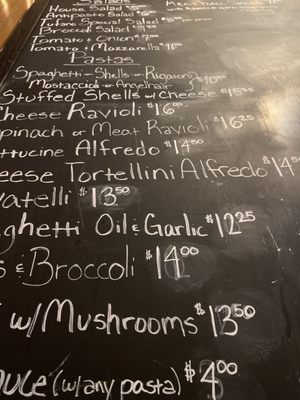 Salads
House Salad $
Antipasto Salad $
Tufano Special Salad $
Broccoli Salad $
Tomato & Onion $
Tomato & Mozzarella $
Pastas
Spaghetti - Shells or Rigatoni
Mostaccioli or Angelhair
Stuffed Shells w/ Cheese $15.75
Cheese Ravioli $16.00
Spinach or Meat Ravioli $16.25
ttucine Alfredo $14.50
eese Tortellini Alfredo $14.5
vatelli $13.50
ghetti Oil & Garlic $12.25
s & Broccoli $14.00
w/ Mushrooms $13.50
auce (w/any pasta) $4.00